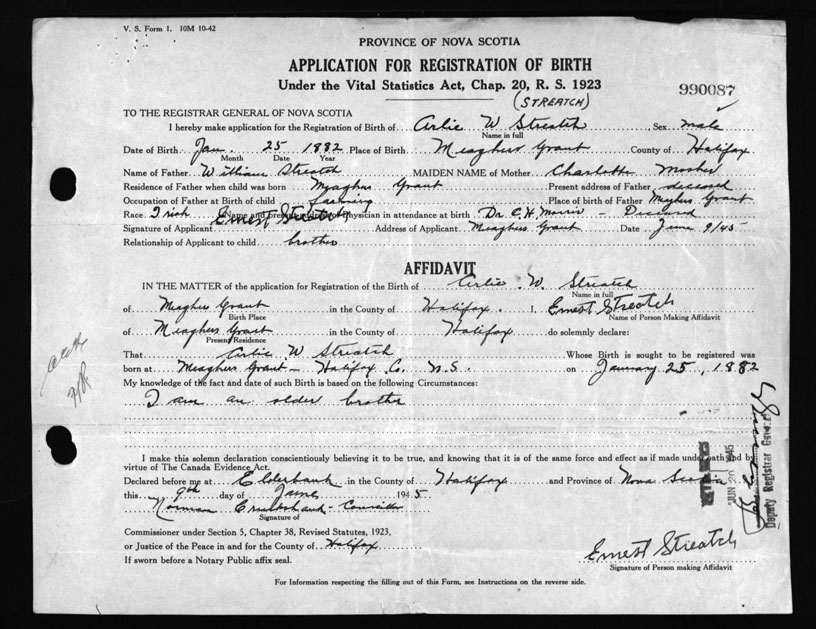 V. S. Form 1. 10M 10-42
PROVINCE OF NOVA SCOTIA
APPLICATION FOR REGISTRATION OF BIRTH
Under the Vital Statistics Act, Chap. 20, R. S. 1923
990087
(STREATCH)
TO THE REGISTRAR GENERAL OF NOVA SCOTIA
I hereby make application for the Registration of Birth of Arlie W Streatch Sex male
Name in full
Date of Birth Jan. 25 1882 Place of Birth Meaghers Grant County of Halifax
Month Date Year
Name of Father William Streatch MAIDEN NAME of Mother Charlotte Mosher
Residence of Father when child was born Meaghers Grant Present address of Father deceased
Occupation of Father at Birth of child farming Place of birth of Father Meaghers Grant
Race Irish Name and present address of Physician in attendance at birth Dr. C. H. Morris - Deceased
Signature of Applicant Ernest Streatch Address of Applicant Meaghers Grant Date June 9/45
Relationship of Applicant to child brother
AFFIDAVIT
IN THE MATTER of the application for Registration of the Birth of Arlie W. Streatch
Name in full
of Meaghers Grant in the County of Halifax. I, Ernest Streatch
Birth Place Name of Person Making Affidavit
of Meaghers Grant in the County of Halifax do solemnly declare:
Present Residence
That Arlie W Streatch Whose Birth is sought to be registered was
born at Meaghers Grant - Halifax Co. N.S. on January 25, 1882
My knowledge of the fact and date of such Birth is based on the following Circumstances:
I am an older brother
I make this solemn declaration conscientiously believing it to be true, and knowing that it is of the same force and effect as if made under oath and by
virtue of The Canada Evidence Act.
Declared before me at Elderbank in the County of Halifax and Province of Nova Scotia
this 9th day of June 1945
Norman Cruikshank - Councillor
Signature of
Commissioner under Section 5, Chapter 38, Revised Statutes, 1923,
or Justice of the Peace in and for the County of Halifax
If sworn before a Notary Public affix seal.
Ernest Streatch
Signature of Person making Affidavit
For Information respecting the filling out of this Form, see Instructions on the reverse side.
Deputy Registrar General